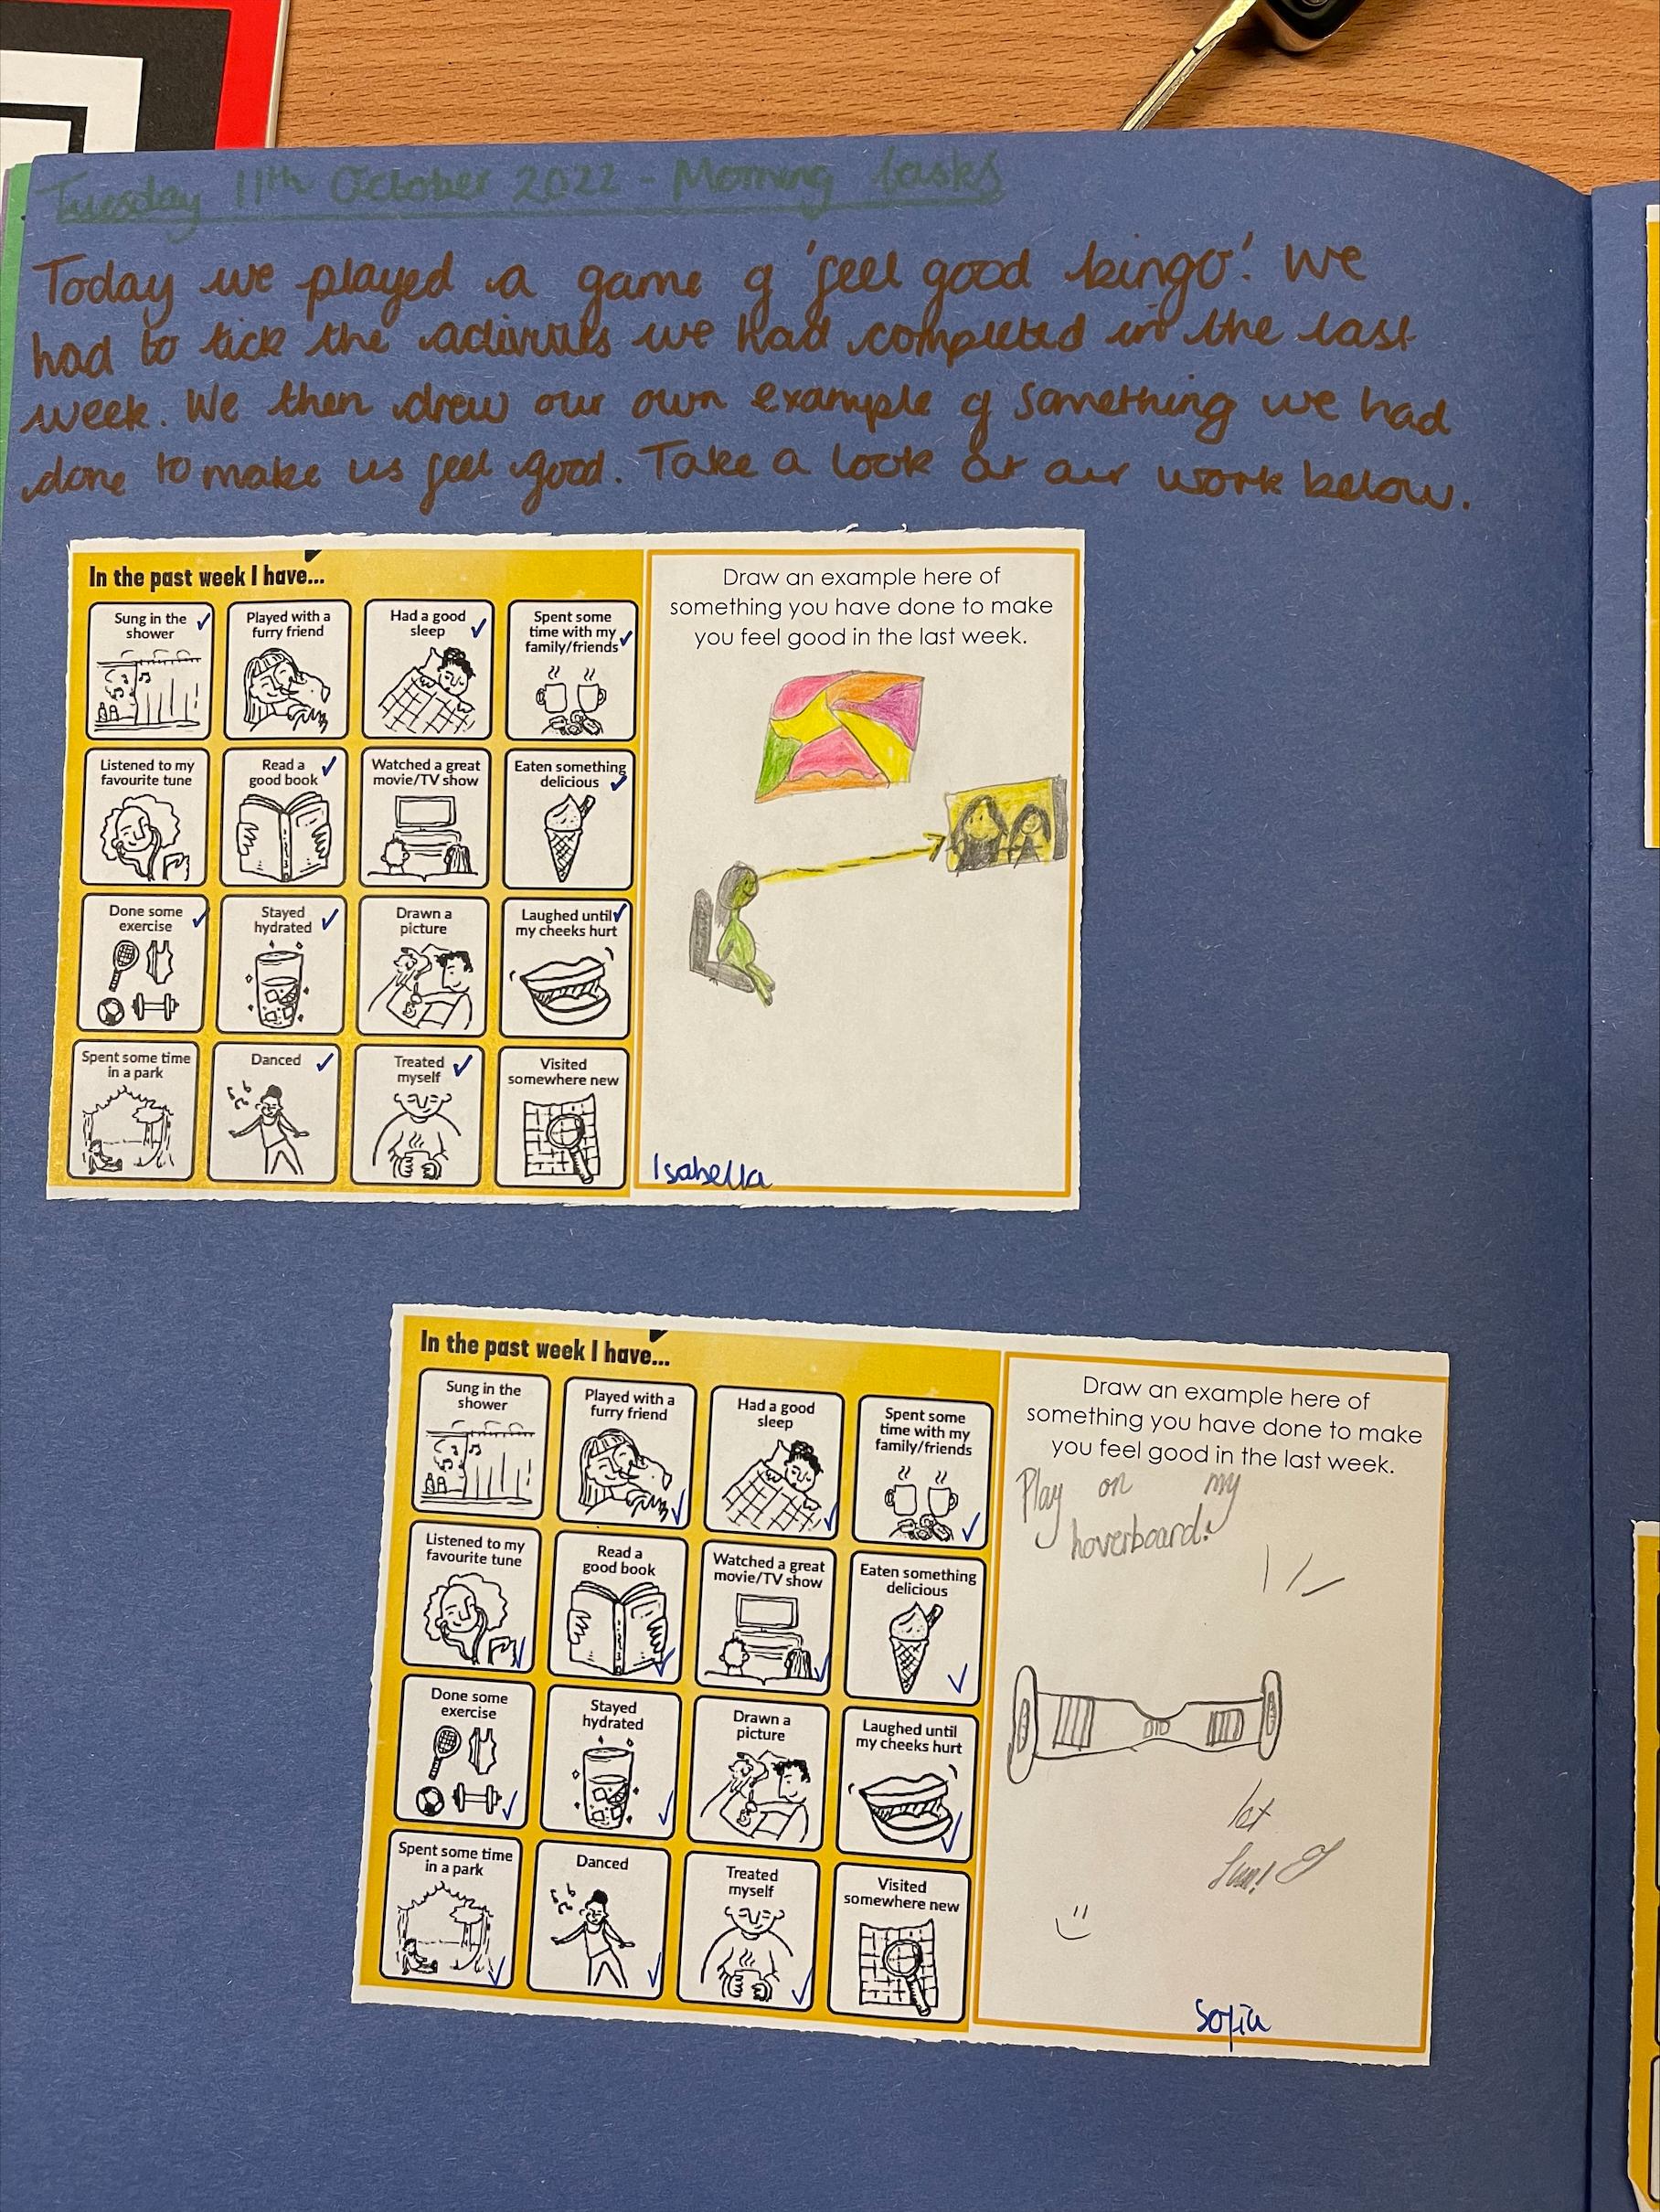 Tuesday 11th October 2022 - Morning tasks
Today we played a game of 'feel good bingo'. We
had to tick the activities we had completed in the last
week. We then drew our own example of something we had
done to make us feel good. Take a look at our work below.
In the past week I have...
Sung in the
shower
Played with a
furry friend
Had a good
sleep
Spent some
time with my
family/friends
Listened to my
favourite tune
Read a
good book
Watched a great
movie/TV show
Eaten something
delicious
Done some
exercise
Stayed
hydrated
Drawn a
picture
Laughed until
my cheeks hurt
Spent some time
in a park
Danced
Treated
myself
Visited
somewhere new
Draw an example here of
something you have done to make
you feel good in the last week.
Isabella
In the past week I have...
Sung in the
shower
Played with a
furry friend
Had a good
sleep
Spent some
time with my
family/friends
Listened to my
favourite tune
Read a
good book
Watched a great
movie/TV show
Eaten something
delicious
Done some
exercise
Stayed
hydrated
Drawn a
picture
Laughed until
my cheeks hurt
Spent some time
in a park
Danced
Treated
myself
Visited
somewhere new
Draw an example here of
something you have done to make
you feel good in the last week.
Play on my
hoverboard.
fun!
Sofia